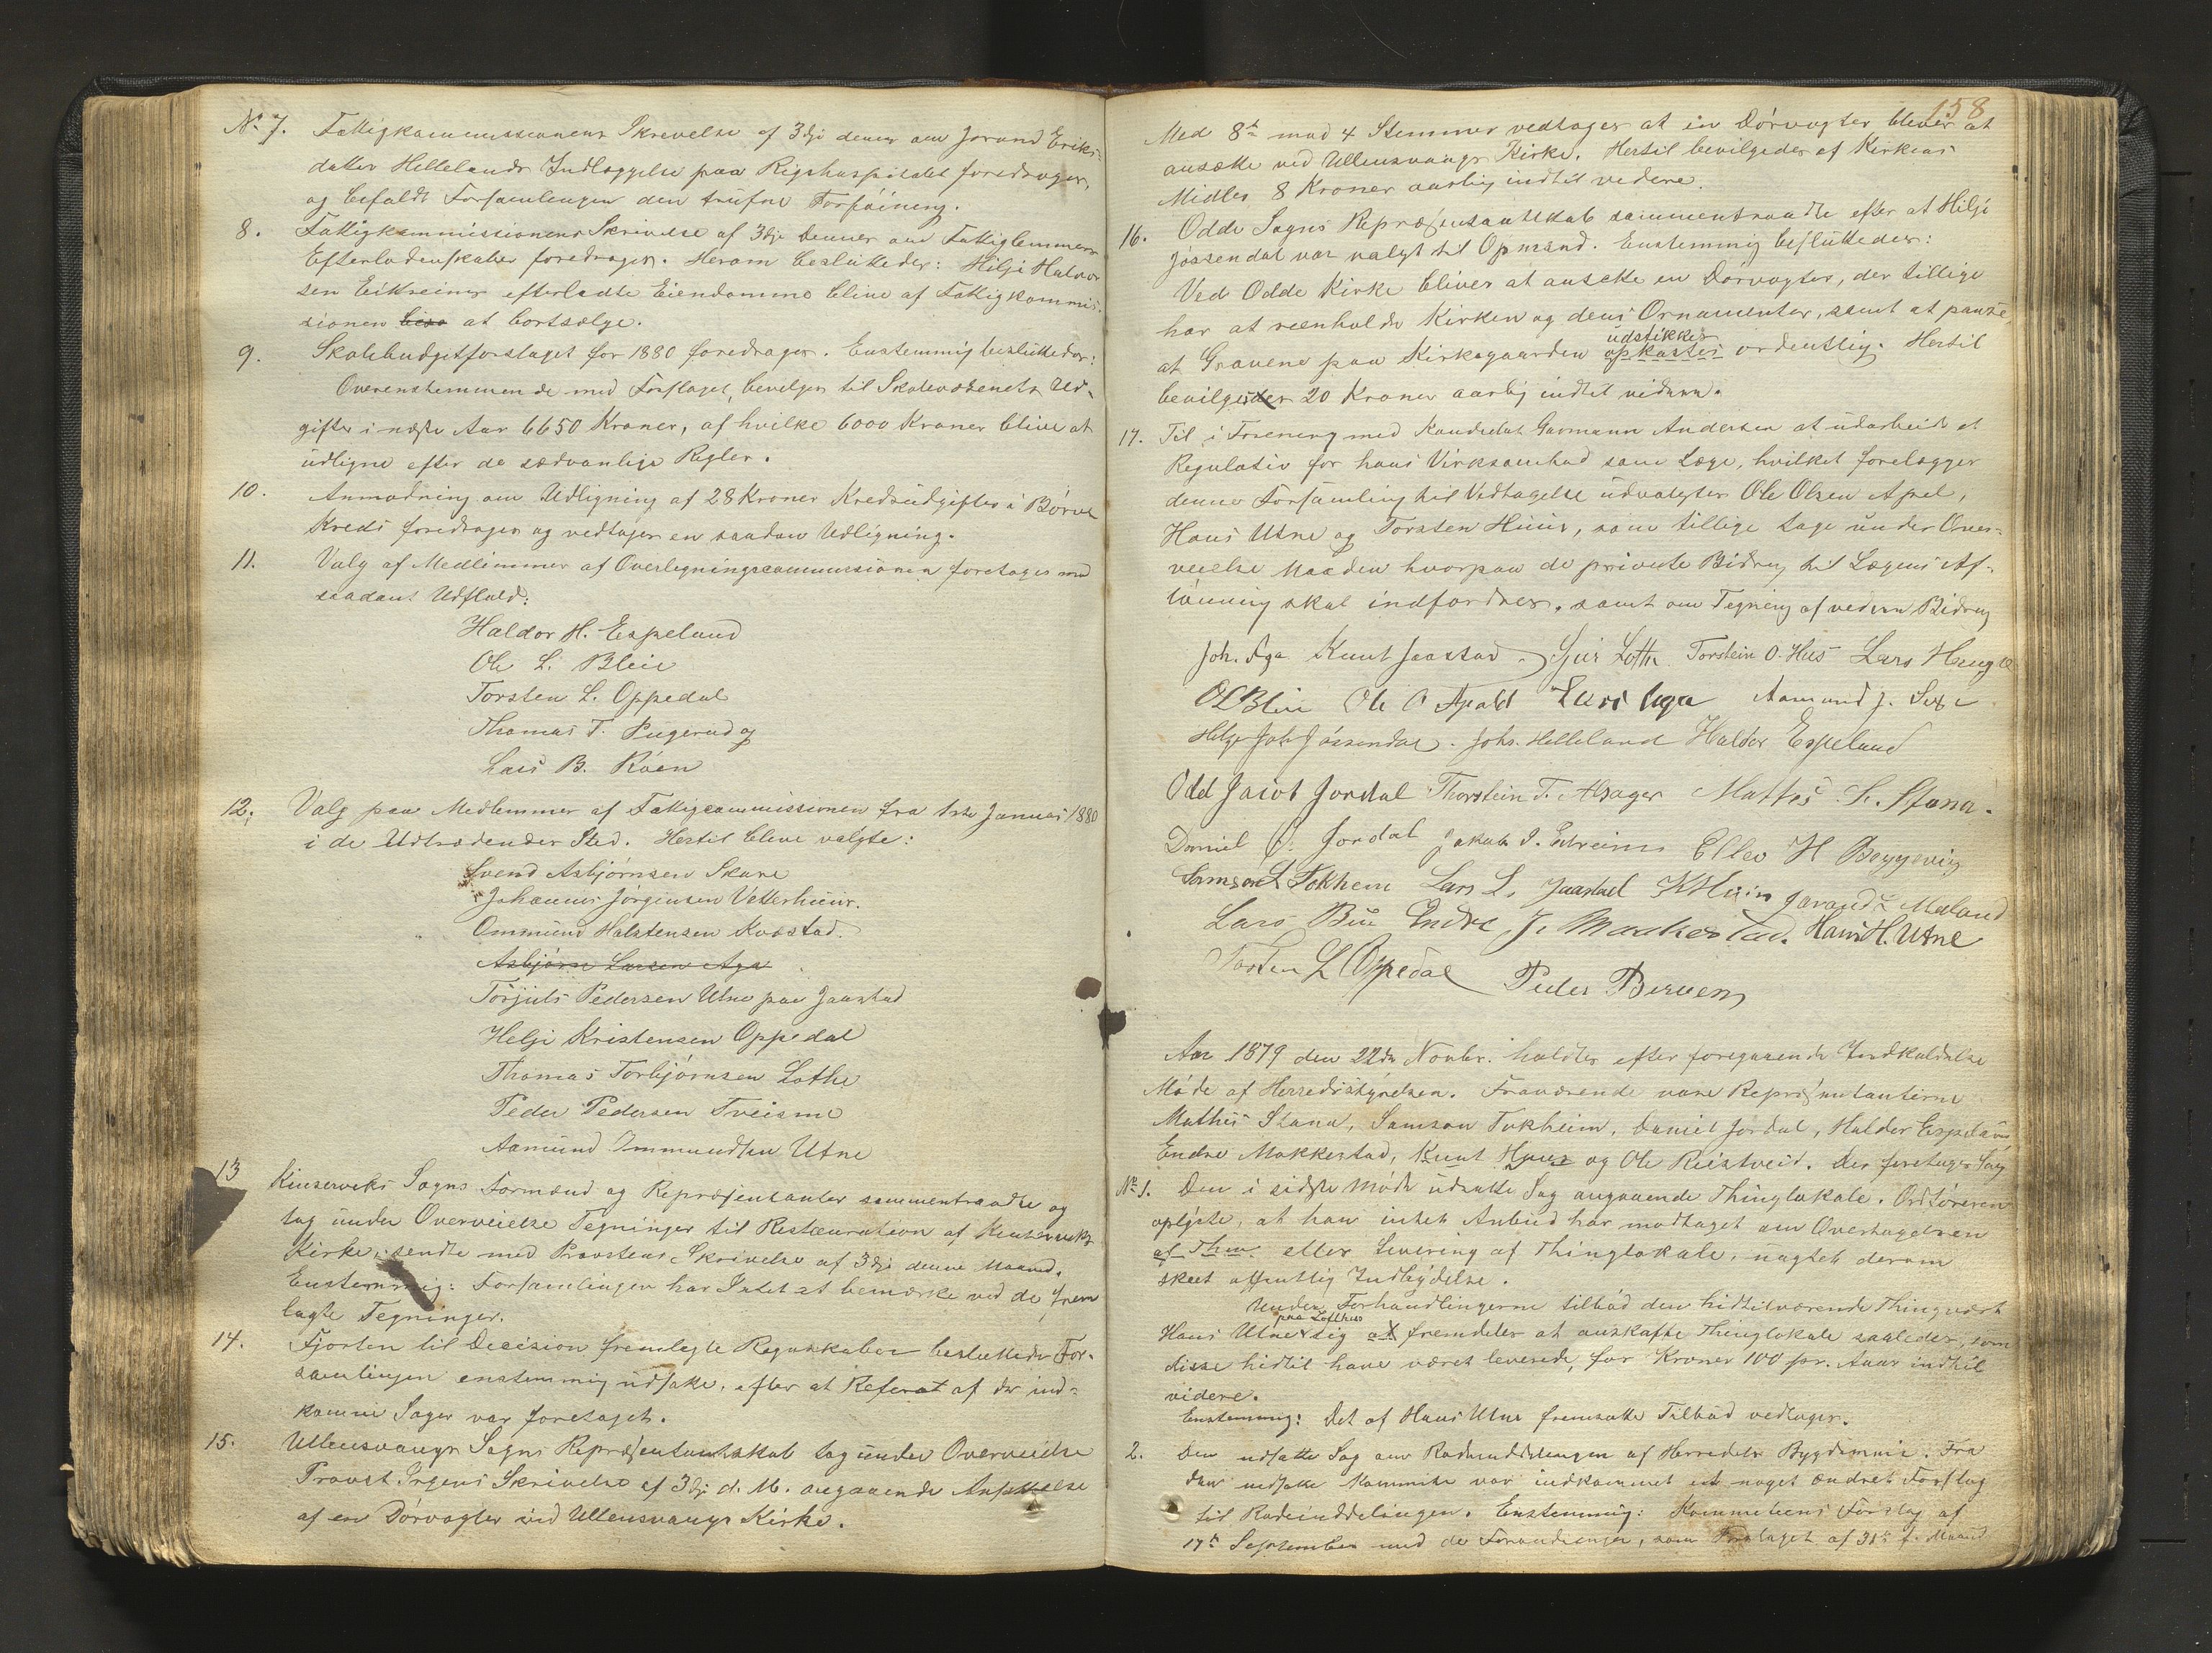 No 7. Fattigkommissionens Skrivelse af 3dje dennes om Jorand Eriks-
datter Hellelands Indlæggelse paa Rigshospitalet foredroges,
og befaldt Forsamlingen den trufne Forføining.
8. Fattigkommissionens Skrivelse af 3dje Dennes om Fattiglemmers
Efterladenskaber foredroges. Herom besluttedes: Helje Halvor
sen Eitreims efterladte Eiendomme blive af Fattigkommis-
sionen at bortsælge.
9. Skolebudgetforslaget for 1880 foredroges. Enstemmig besluttedes:
Overenstemmende med Forslaget, bevilges til Skolevæsenets Ud-
gifter i næste Aar 6650 Kroner, af hvilke 6000 Kroner blive at
udligne efter de sædvanlige Regler.
10. Anmodning om Udligning af 28 Kroner Kredsudgifter i Børve
Kreds foredroges og vedtoges en saadan Udligning.
11. Valg af Medlemmer af Overligningscommissionen foretoges med
saadant Udfald:
Haldor H. Espeland
Ole L. Bleie
Torsten L. Oppedal
Thomas T. Rugerud og
Lars B. Roen
12. Valg paa Medlemmer af Fattigcommissionen fra 1ste Januar 1880
i de Udtrædendes Sted. Hertil bleve valgte:
Svend Asbjørnsen Skare
Johannes Jørgensen Vetterhuus.
Ommund Halstensen Kvæstad.
Asbjørn Larsen Aga
Torjuls Pedersen Utne paa Jaastad
Helje Kristensen Oppedal
Thomas Torbjørnsen Lothe
Peder Pedersen Tveisme
Aamund Ommundsen Utne
13 Kinserviks Sogns Formænd og Repræsentanter sammentraadte og
tog under Overveielse Tegninger til Restauration af Kinserviks
Kirke, sendte med Provstens Skrivelse af 3dje denne Maaned.
Enstemmig: Forsamlingen har Intet at bemærke ved de frem
lagte Tegninger.
14. Fjorten til Decision fremlagte Regnskaber besluttede For-
samlingen enstemmig udsatte, efter at Referat af de ind-
komne Sager var foretaget.
15. Ullensvangs Sogns Repræsentantskab tog under Overveielse
Provst Irgens Skrivelse af 3dje d. M. angaaende Ansættelse
af en Dørvogter ved Ullensvangs Kirke.
158
Med 8te mod 4 Stemmer vedtoges at en Dørvogter bliver at
ansætte ved Ullensvangs Kirke. Hertil bevilgedes af Kirkens
Midler 8 Kroner aarlig indtil videre.
16. Odde Sogns Repræsentantskab sammentraadte efter at Helje
Jøssendal var valgt til Opmand. Enstemmig besluttedes:
Ved Odde Kirke bliver at ansætte en Dørvogter, der tillige
har at reenholde Kirken og dens Ornamenter, samt at passe,
udstikkes
at Gravene paa Kirkegaarden opkastes ordentlig. Hertil
bevilges 20 Kroner aarlig indtil videre.
17. Til, i Forening med Kandidat Garmann Andersen at udarbeide et
Regulativ for hans Virksomhed som Læge, hvilket forelægges
denne Forsamling til Vedtagelse udvalgtes Ole Olsen Apel,
Hans Utne og Torsten Huus, som tillige tage under Over-
veielse Maaden hvorpaa de private Bidrag til Lægens Af-
lønning skal indfordres, samt om Tegning af videre Bidrag
Joh. Aga Knut Jaastad Sjur Lothe Torstein O. Hus Lars Hauge
O L Bleie Ole O Apald Lars Aga Aamund J. Sexe
Helge Joh Jøssendal. Johs. Helleland Haldor Espeland
Odd Jacob Jordal Thorstein T. Alsager Mattis S. Stana.
Daniel J. Jordal Jakob I. Eitreim Ellev H Beggevig
Samson L Tokheim Lars L. Jaastad K Huus Garand Mæland
Lars Bu Endre J. Maakestad. Hans H. Utne
Torsten L Oppedal Peder Berven
Aar 1879 den 22de Novbr. holdtes efter foregaaende Indkaldelse
Møde af Herredsstyrelsen. Fraværende vare Repræsentanterne
Mathis Stana, Samson Tokheim, Daniel Jordal, Haldor Espeland
Endre Makkestad, Knut Huus og Ole Reistveid. Der foretoges Sag
No 1. Den i sidste Møde udsatte Sag angaaende Thinglokale. Ordføreren
oplyste, at han intet Anbud har modtaget om Overtagelsen
af Thin. eller Levering af Thinglokale, uagtet derom
skeet offentlig Indbydelse.
Under Forhandlingerne tilbød den hidtilværende Thingvært
paa Lofthus
Hans Utne sig at fremdeles at anskaffe Thinglokale saaledes, som
disse hidtil have været leverede, for Kroner 100 pr. Aar indtil
videre.
Enstemmig: Det af Hans Utne fremsatte Tilbud vedtages.
2. Den udsatte Sag om Rodeinddelingen af Herredets Bygdeveie. Fra
den nedsatte Kommite var indkommet et noget ændret Forslag
til Rodeinddelingen. Enstemmig: Kommiteens Forslag af
17de September med de Forandringer, som Forslaget af 31te f. Maaned